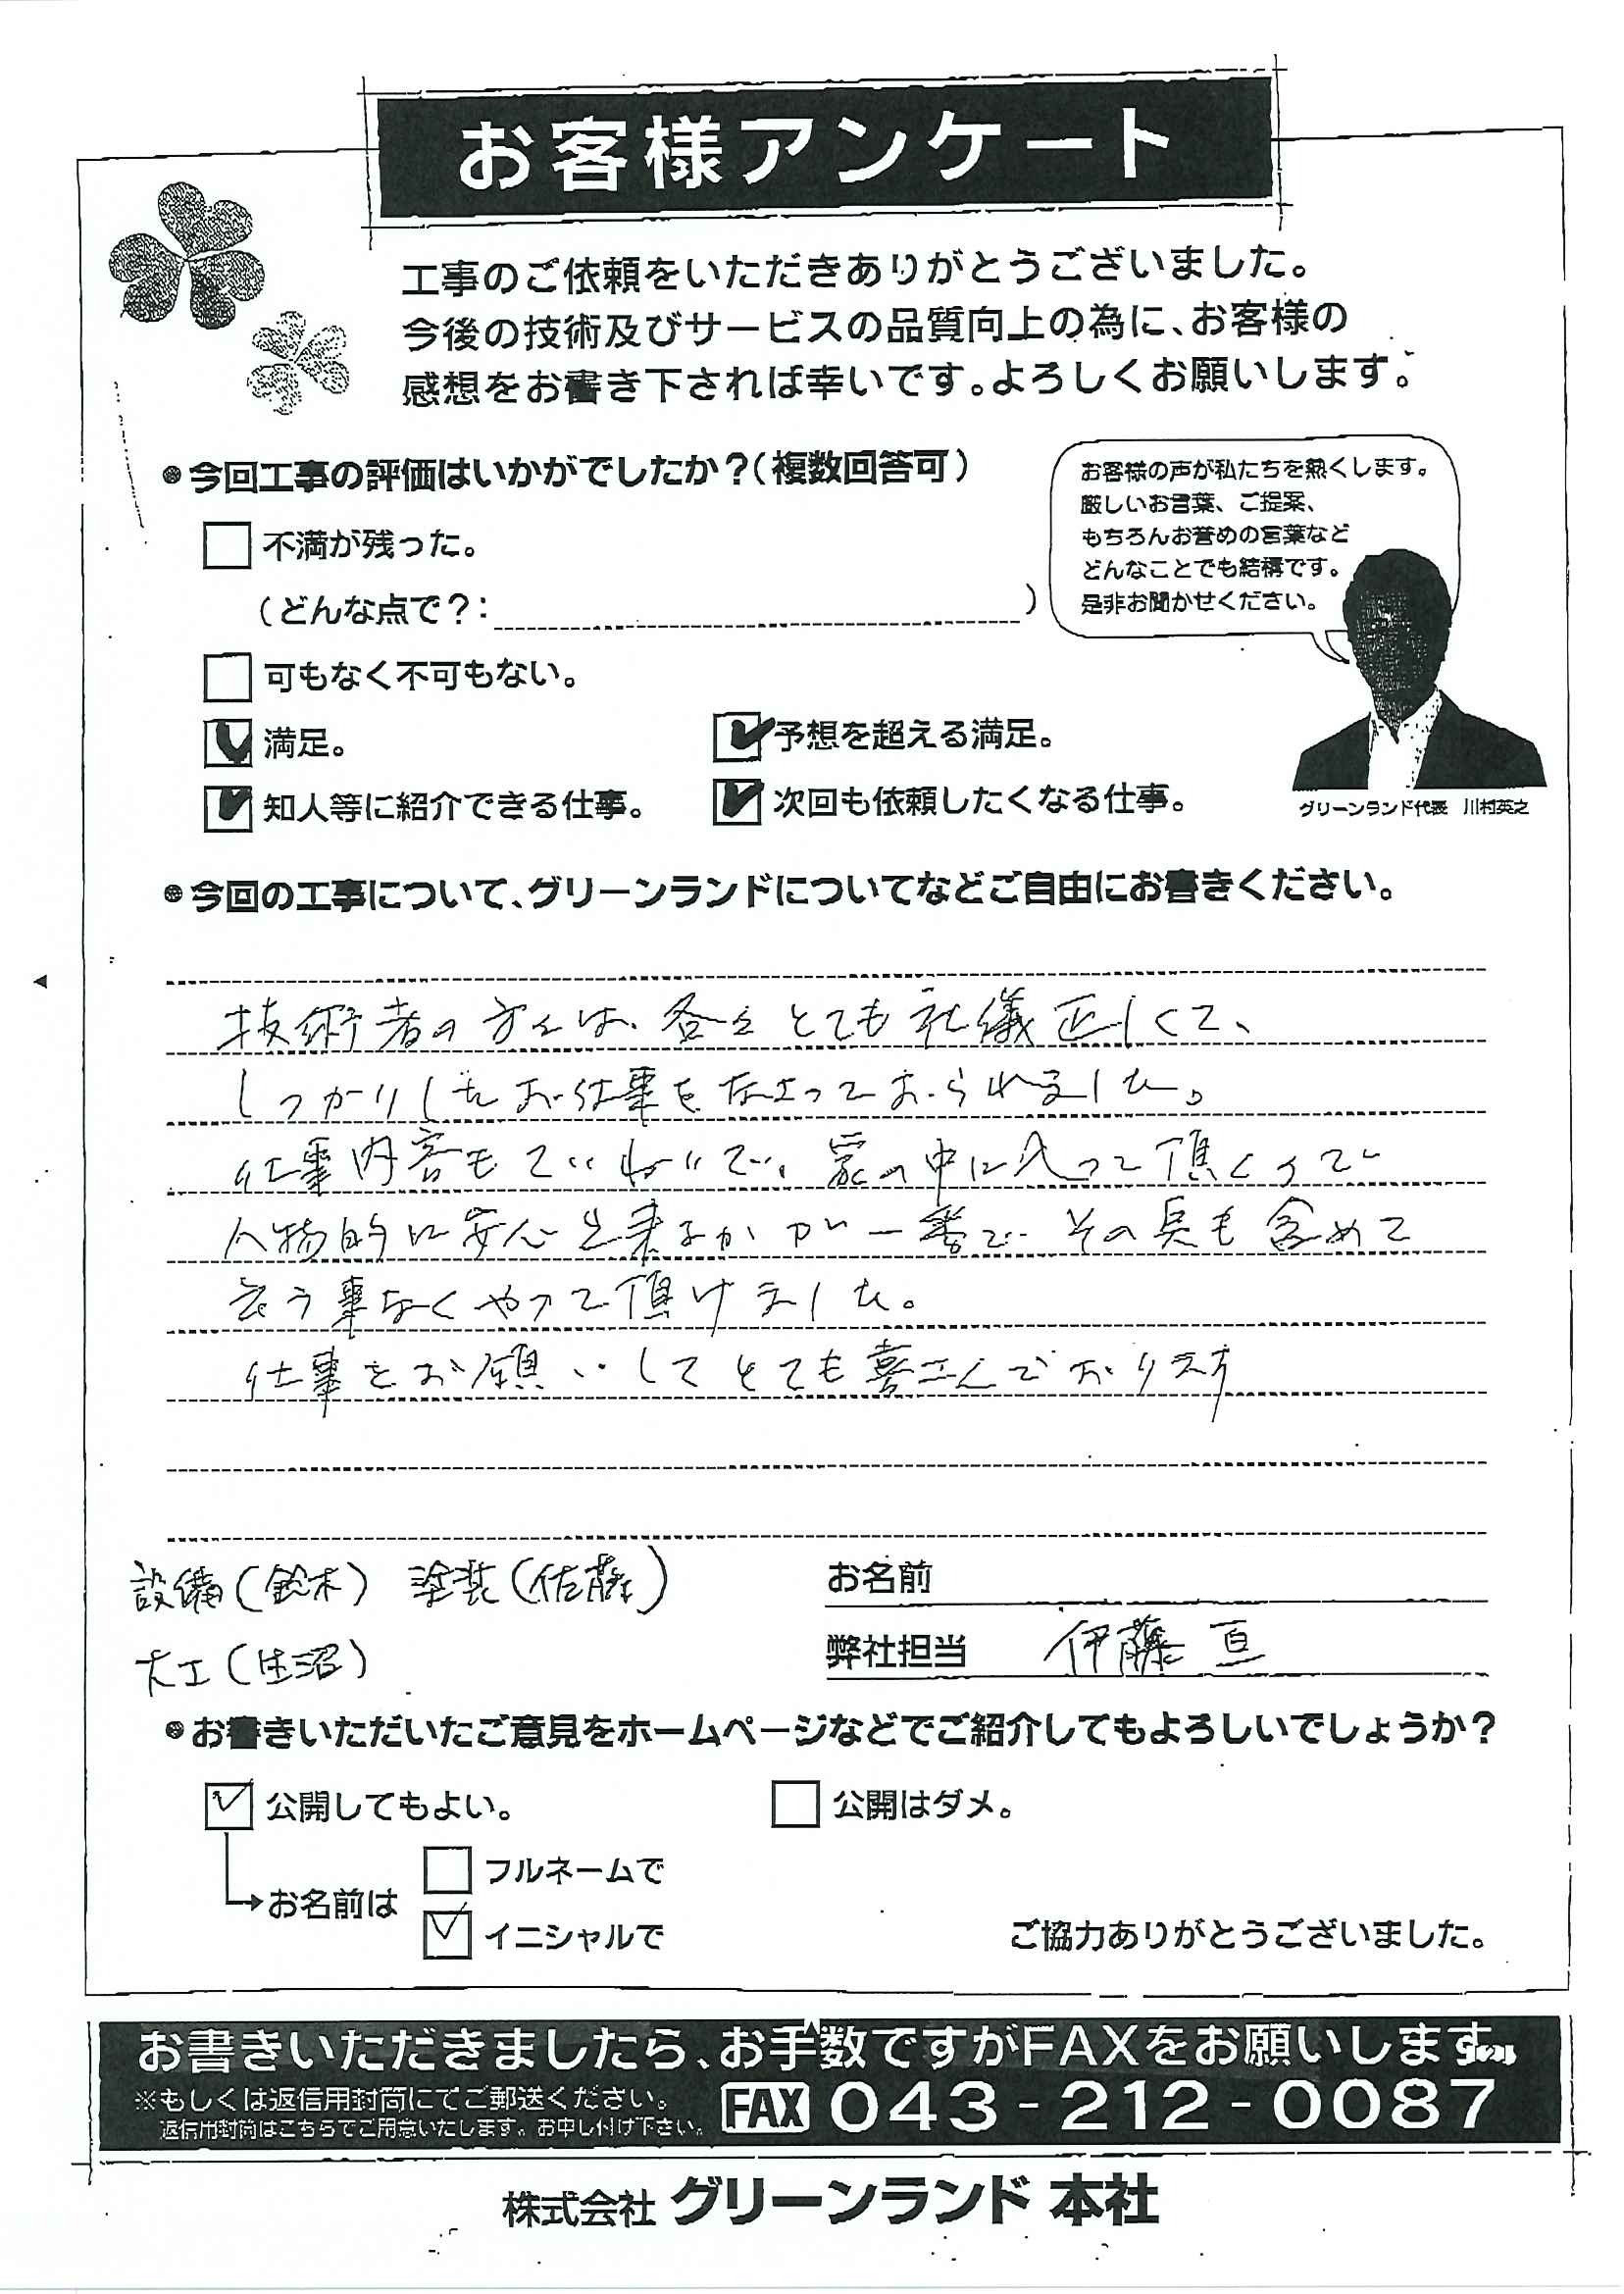 お客様アンケート
工事のご依頼をいただきありがとうございました。
今後の技術及びサービスの品質向上の為に、お客様の
感想をお書き下されば幸いです。よろしくお願いします。
●今回工事の評価はいかがでしたか？（複数回答可）
不満が残った。
（どんな点で？： ）
可もなく不可もない。
満足。
予想を超える満足。
知人等に紹介できる仕事。
次回も依頼したくなる仕事。
お客様の声が私たちを熱くします。
厳しいお言葉、ご提案、
もちろんお誉めの言葉など
どんなことでも結構です。
是非お聞かせください。
グリーンランド代表 川村英之
●今回の工事について、グリーンランドについてなどご自由にお書きください。
技術者の方々は、各々とても礼儀正しくて、
しっかりしたお仕事をなさっておられました。
仕事内容もていねいで、家の中に入って頂くので
人物的に安心出来るかが一番で その点も含めて
言う事なくやって頂けました。
仕事をお願いしてとても喜こんでおります
設備(鈴木) 塗装(佐藤)
大工(生沼)
お名前
弊社担当 伊藤 亘
●お書きいただいたご意見をホームページなどでご紹介してもよろしいでしょうか？
公開してもよい。
公開はダメ。
お名前は
フルネームで
イニシャルで
ご協力ありがとうございました。
お書きいただきましたら、お手数ですがFAXをお願いします
※もしくは返信用封筒にてご郵送ください。
返信用封筒はこちらでご用意いたします。お申し付け下さい。
FAX 043-212-0087
株式会社 グリーンランド 本社